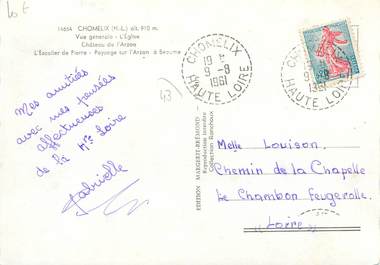 10 €
14654 CHOMELIX (H.-L.) alt. 910 m.
Vue générale - L'Église
Château de l'Arzon
L'Escalier de Pierre - Paysage sur l'Arzon à Beaume
CHOMELIX
19 H
9-8
1961
HAUTE LOIRE
CHOMELIX
1961
HAUTE LOIRE
43
Mes amitiés
avec mes pensées
affectueuses
de la Hte Loire
Gabrielle
EDITION MARGERIT-BRÉMOND
Reproduction interdite
Collection Ranchoux
Melle Louison.
Chemin de la Chapelle
Le Chambon Feugerolle.
Loire